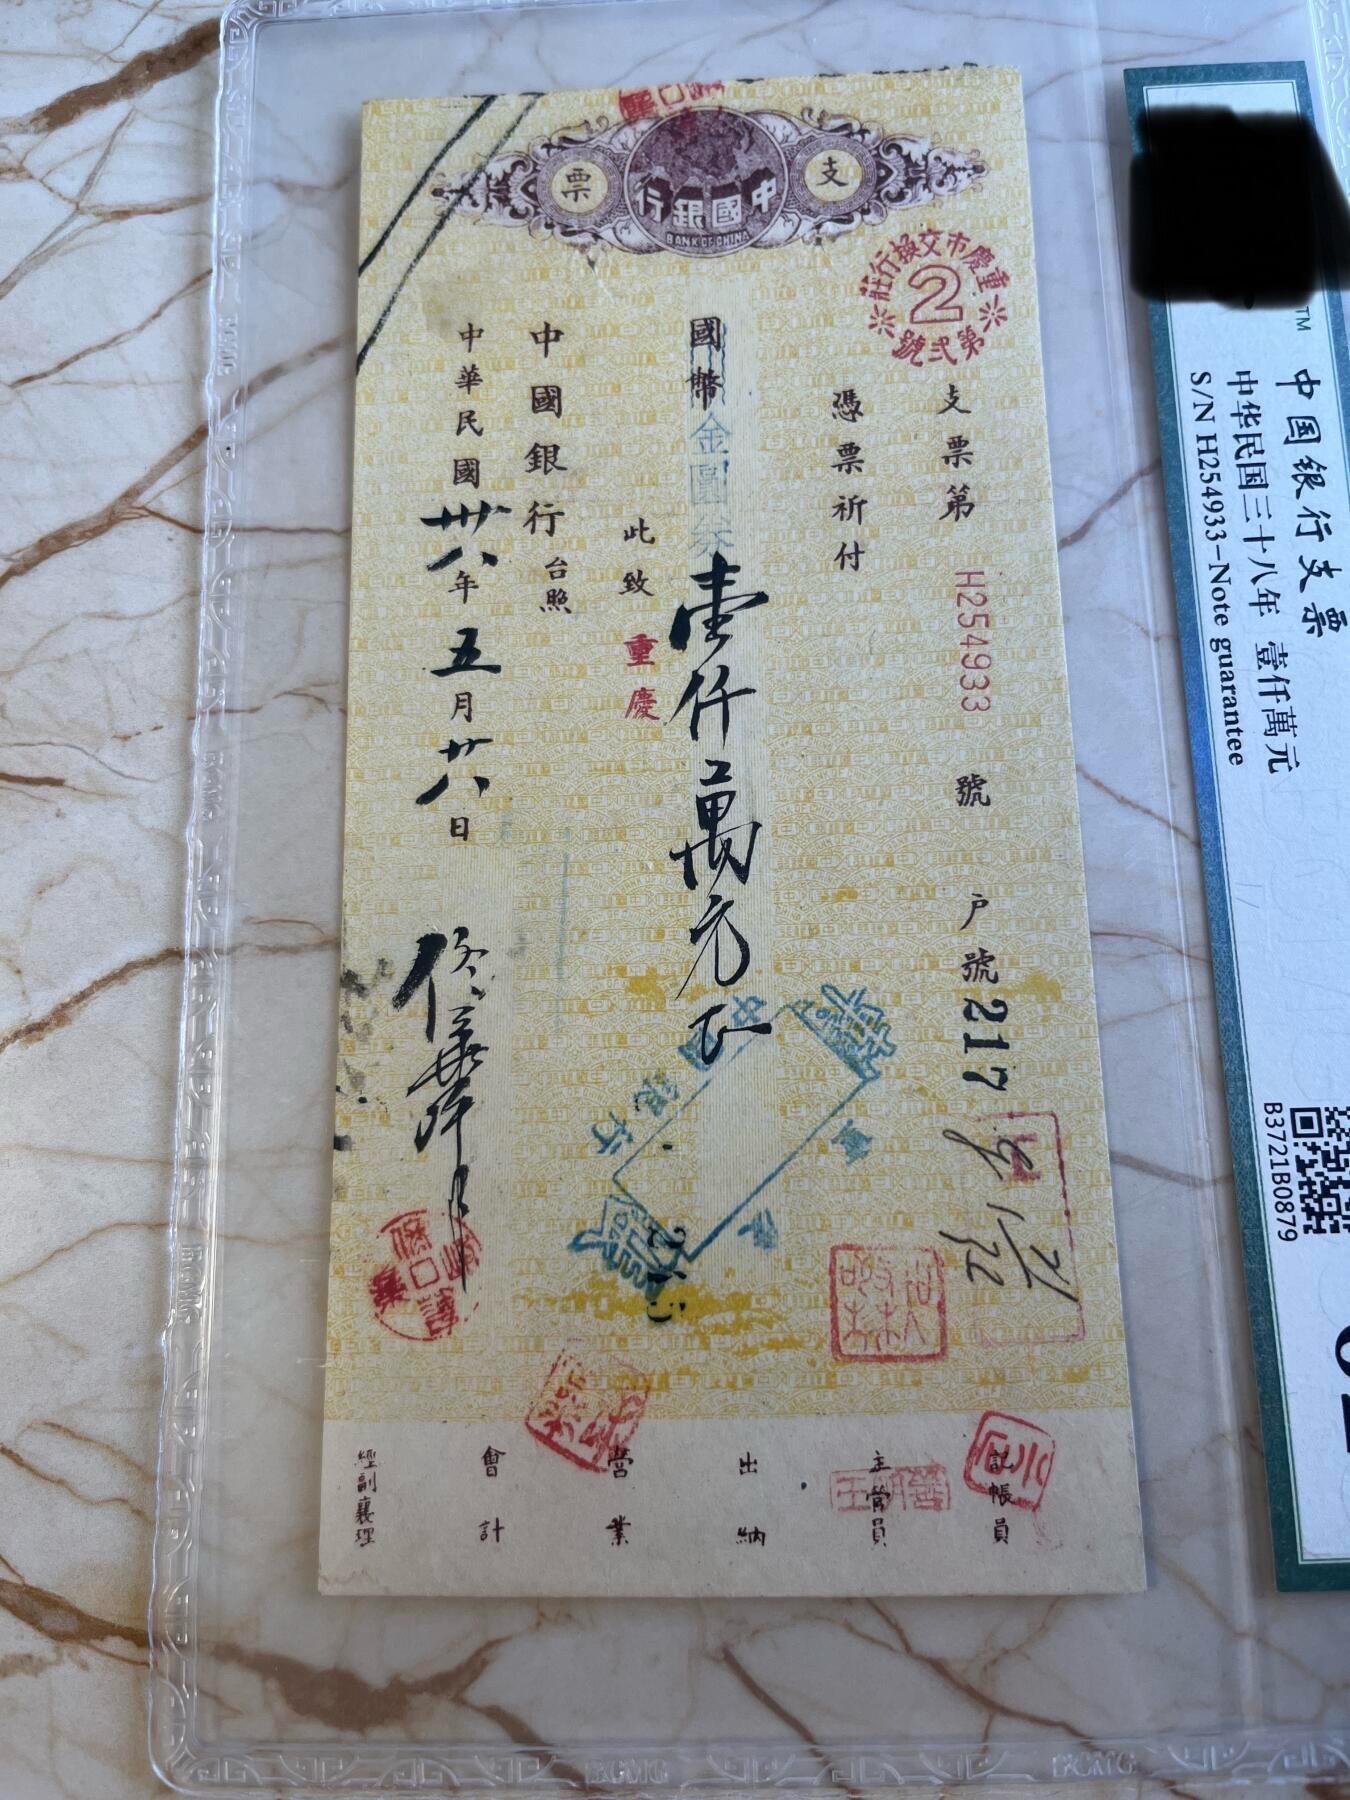 支票
中國銀行
BANK OF CHINA
重慶市交換行莊
2
第弍號
支票第 H254933 號 户號 217
憑票祈付
國幣金圓券壹仟萬元正
此致 重慶
中國銀行台照
中華民國卅八年五月廿八日
中國銀行
重慶
記帳員
主管員
出納
營業
會計
經副襄理
TM
中国银行支票
中华民国三十八年 壹仟萬元
S/N H254933-Note guarantee
B3721B0879
BGMG